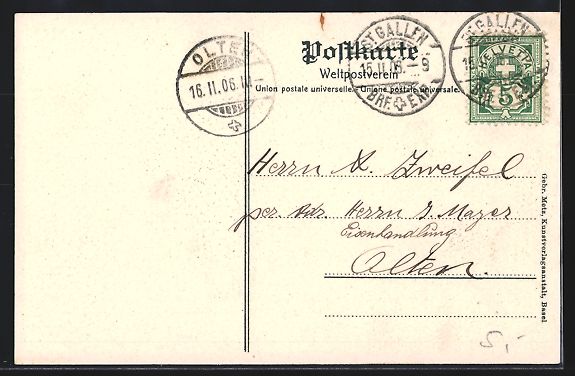 Postkarte
Weltpostverein
Union postale universelle. - Unione postale universale.
OLTEN
16.II.06.
ST. GALLEN
15.II.06.-9
BRF. EXP.
ST. GALLEN
BRF. EXP.
HELVETIA
5
Herrn A. Zweifel
per. Adr. Herrn J. Mayer
Eisenhandlung
Olten.
Gebr. Metz, Kunstverlagsanstalt, Basel
5,-